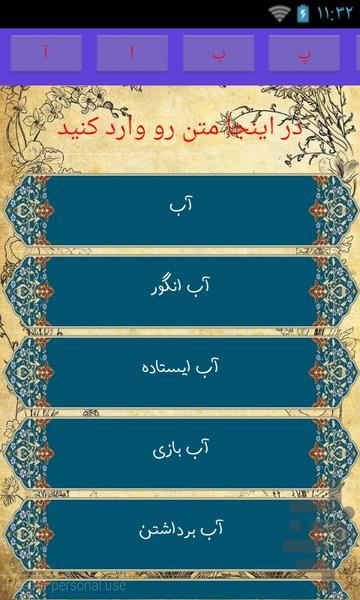 ۱۱:۳۲
آ ا ب پ
در اینجا متن رو وارد کنید
آب
آب انگور
آب ایستاده
آب بازی
آب برداشتن
personal use